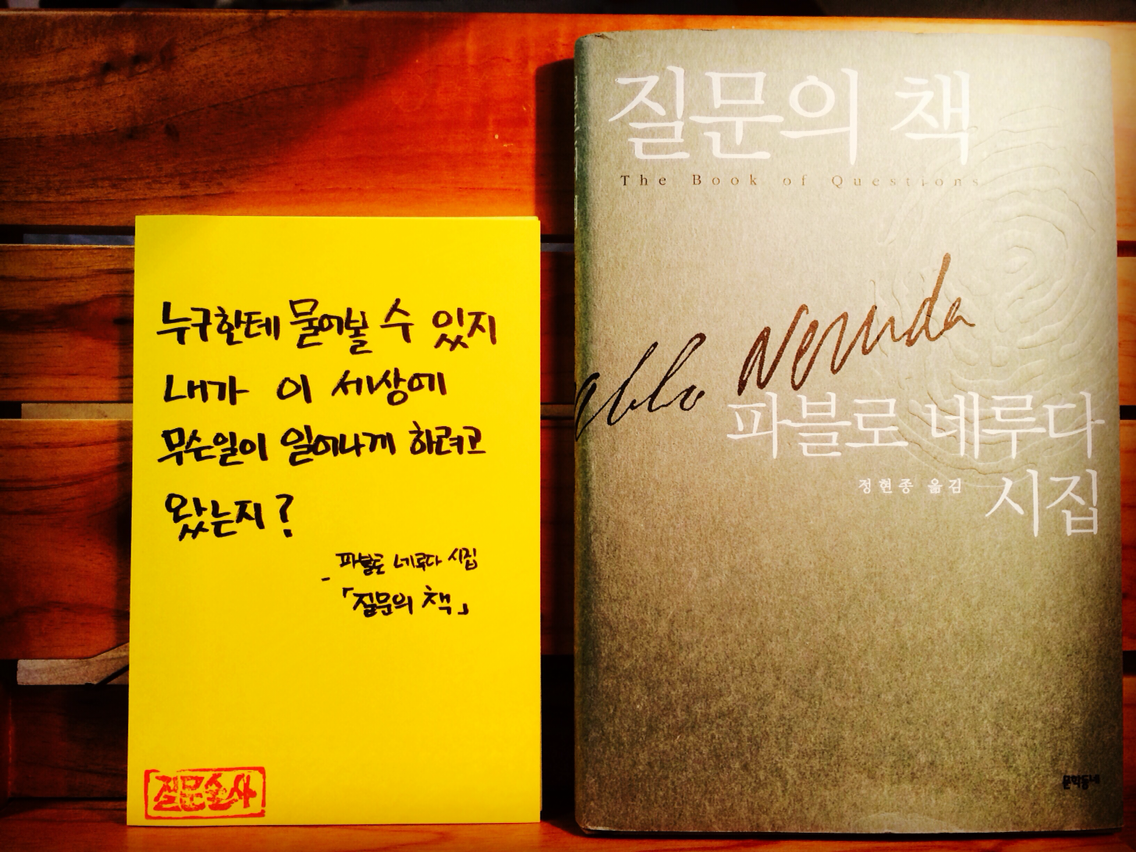 누구한테 물어볼 수 있지
내가 이 세상에
무슨일이 일어나게 하려고
왔는지?
- 파블로 네루다 시집
「질문의 책」
질문술사
질문의 책
The Book of Questions
Pablo Neruda
파블로 네루다
정현종 옮김
시집
문학동네